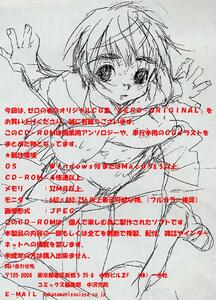 今回は、ゼロの者のオリジナルCG集「ZERO ORIGINAL」を
お買い上げくださり、誠に有難うございます。
このCD-ROMは商業用アンソロジーや、単行本用のCGイラストを
まとめた物となってます。
★動作環境
OS Windows98またはMacOS8.5以上
CD-ROM 4倍速以上
メモリ 32MB以上
モニタ 640×480,256以上表示可能な物、(フルカラー推奨)
画像形式 JPEG
このCD-ROMは、個人で楽しむ為に製作されたソフトです。
本製品の内容の一部もしくは全てを無断で複製、配信、雑誌やインター
ネットへの掲載を禁じます。
未成年の方は購入出来ません。
問い合わせ先
〒105-0004 東京都港区新橋5-35-8
コミックス編集部 中沢方政
E-MAIL